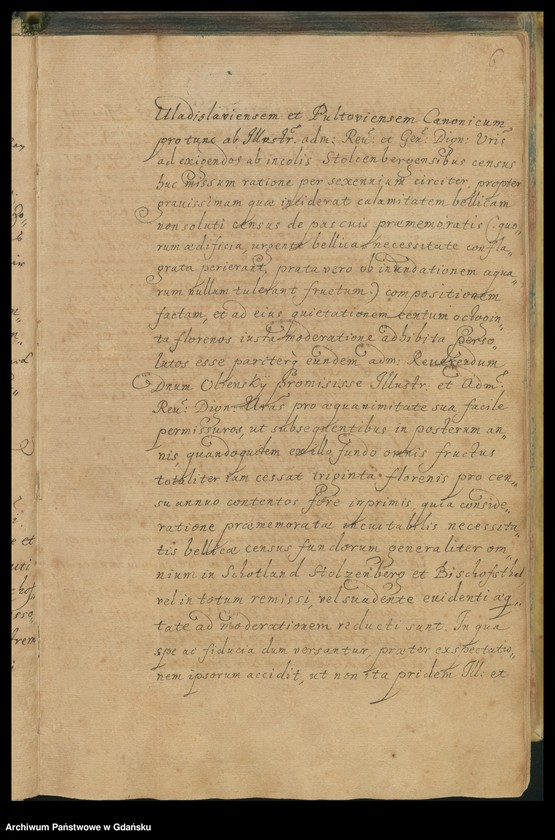 6
Uladislaviensem et Pultoviensem Canonicum
pro tunc ab Illustr: adm: Reu: et Gen: Dign: Vris
ad exigendos ab incolis Stoltenbergensibus census
huc missum ratione per sexennium circiter propter
gravissimam quæ inciderat calamitatem bellicam
non soluti census de pascuis præmemoratis (: quo„
rum ædificia, urgente bellica necessitate confla„
grata perierant, prata vero ob inundationem aqua„
rum nullum tulerant fructum :) compositionem
factam, et ad eius quietationem centum octogin„
ta florenos iusta moderatione adhibita perso„
lutos esse pariterq eundem adm: Reuerendum
Dnum Olbensky promisisse Illustr: et Adm:
Reu: Dign: Vras pro æquanimitate sua facile
permissuros, ut subsequentibus in posterum an„
nis quandoquidem ex illo fundo omnis fructus
totaliter iam cessat triginta florenis pro cen„
su annuo contentos fore inprimis quia conside„
ratione præmemoratæ ineuitabilis necessita„
tis bellicæ census fundorum generaliter om„
nium in Schotland Stolzenberg et Bischofsthal
vel in totum remissi, vel suadente euidenti æq„
tate ad moderationem reducti sunt. In qua
spe ac fiducia dum versantur, præter exspectatio„
nem ipsorum accidit, ut non ita pridem Ill: et
Archiwum Państwowe w Gdańsku